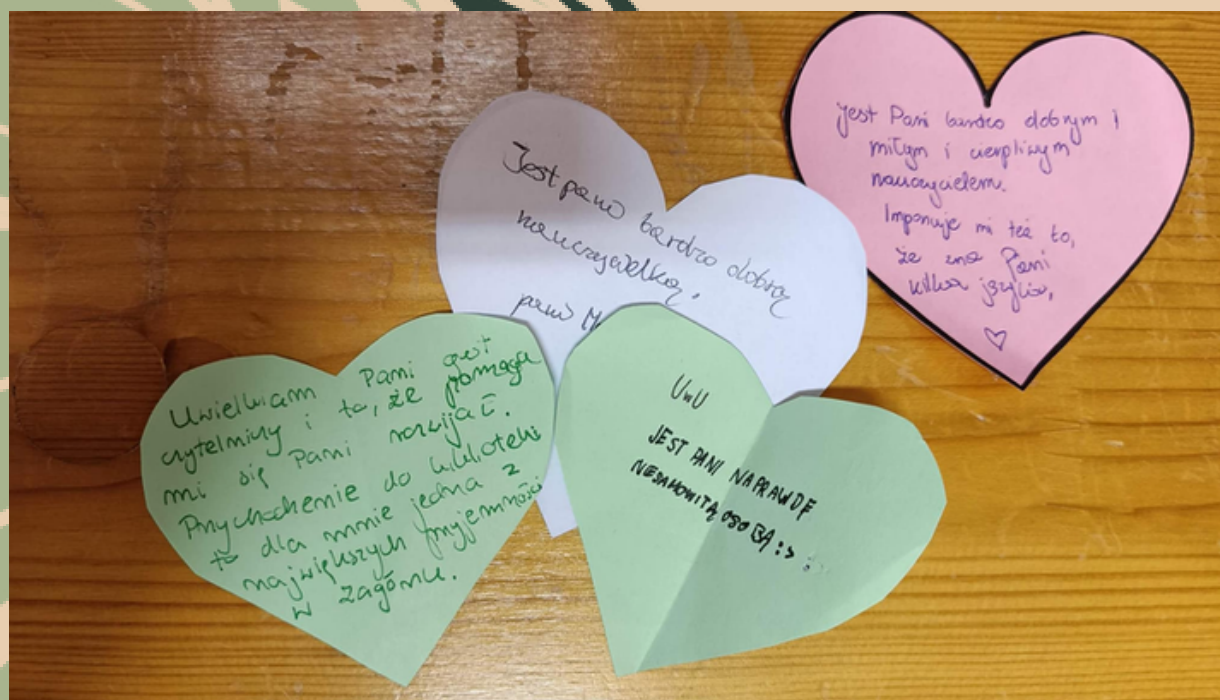 Jest pani bardzo dobrą
nauczycielką,
pani
Jest Pani bardzo dobrym i
miłym i cierpliwym
nauczycielem.
Imponuje mi też to,
że zna Pani
kilka języków,
♡
Uwielbiam Pani gust
czytelniczy i to, że pomaga
mi się Pani rozwijać.
Przychodzenie do biblioteki
to dla mnie jedna z
największych przyjemności
w Zagórzu.
UwU
JEST PANI NAPRAWDĘ
NIESAMOWITĄ OSOBĄ :>